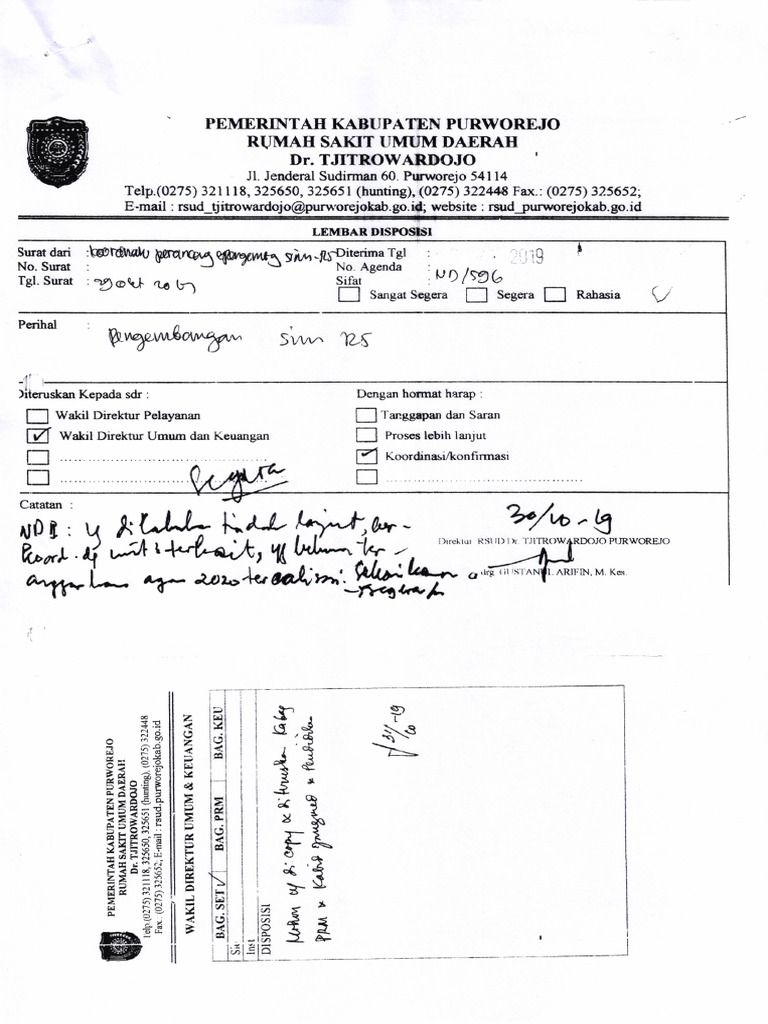 PEMERINTAH KABUPATEN PURWOREJO
RUMAH SAKIT UMUM DAERAH
Dr. TJITROWARDOJO
Jl. Jenderal Sudirman 60. Purworejo 54114
Telp.(0275) 321118, 325650, 325651 (hunting), (0275) 322448 Fax.: (0275) 325652;
E-mail : rsud_tjitrowardojo@purworejokab.go.id; website : rsud_purworejokab.go.id
LEMBAR DISPOSISI
Surat dari : SIM-RS
No. Surat :
Tgl. Surat : 29 Okt
Diterima Tgl : 2019
No. Agenda : ND/596
Sifat :
Sangat Segera Segera Rahasia
Perihal : Pengembangan SIM RS
Diteruskan Kepada sdr :
Wakil Direktur Pelayanan
Wakil Direktur Umum dan Keuangan
Dengan hormat harap :
Tanggapan dan Saran
Proses lebih lanjut
Koordinasi/konfirmasi
Segera
Catatan :
30/10-19
Direktur RSUD Dr. TJITROWARDOJO PURWOREJO
drg. GUSTANUL ARIFIN, M. Kes.
tindak lanjut, ber-
koord. dg unit2 terkait, yg belum ter-
anggarkan agar 2020
PEMERINTAH KABUPATEN PURWOREJO
RUMAH SAKIT UMUM DAERAH
Dr. TJITROWARDOJO
Telp.(0275) 321118, 325650, 325651 (hunting), (0275) 322448
Fax.: (0275) 325652; E-mail : rsud.purworejokab.go.id
WAKIL DIREKTUR UMUM & KEUANGAN
BAG. SET BAG. PRM BAG. KEU
DISPOSISI
Mohon di copy & diteruskan Kabag
PRM & Kabid & Pendidikan